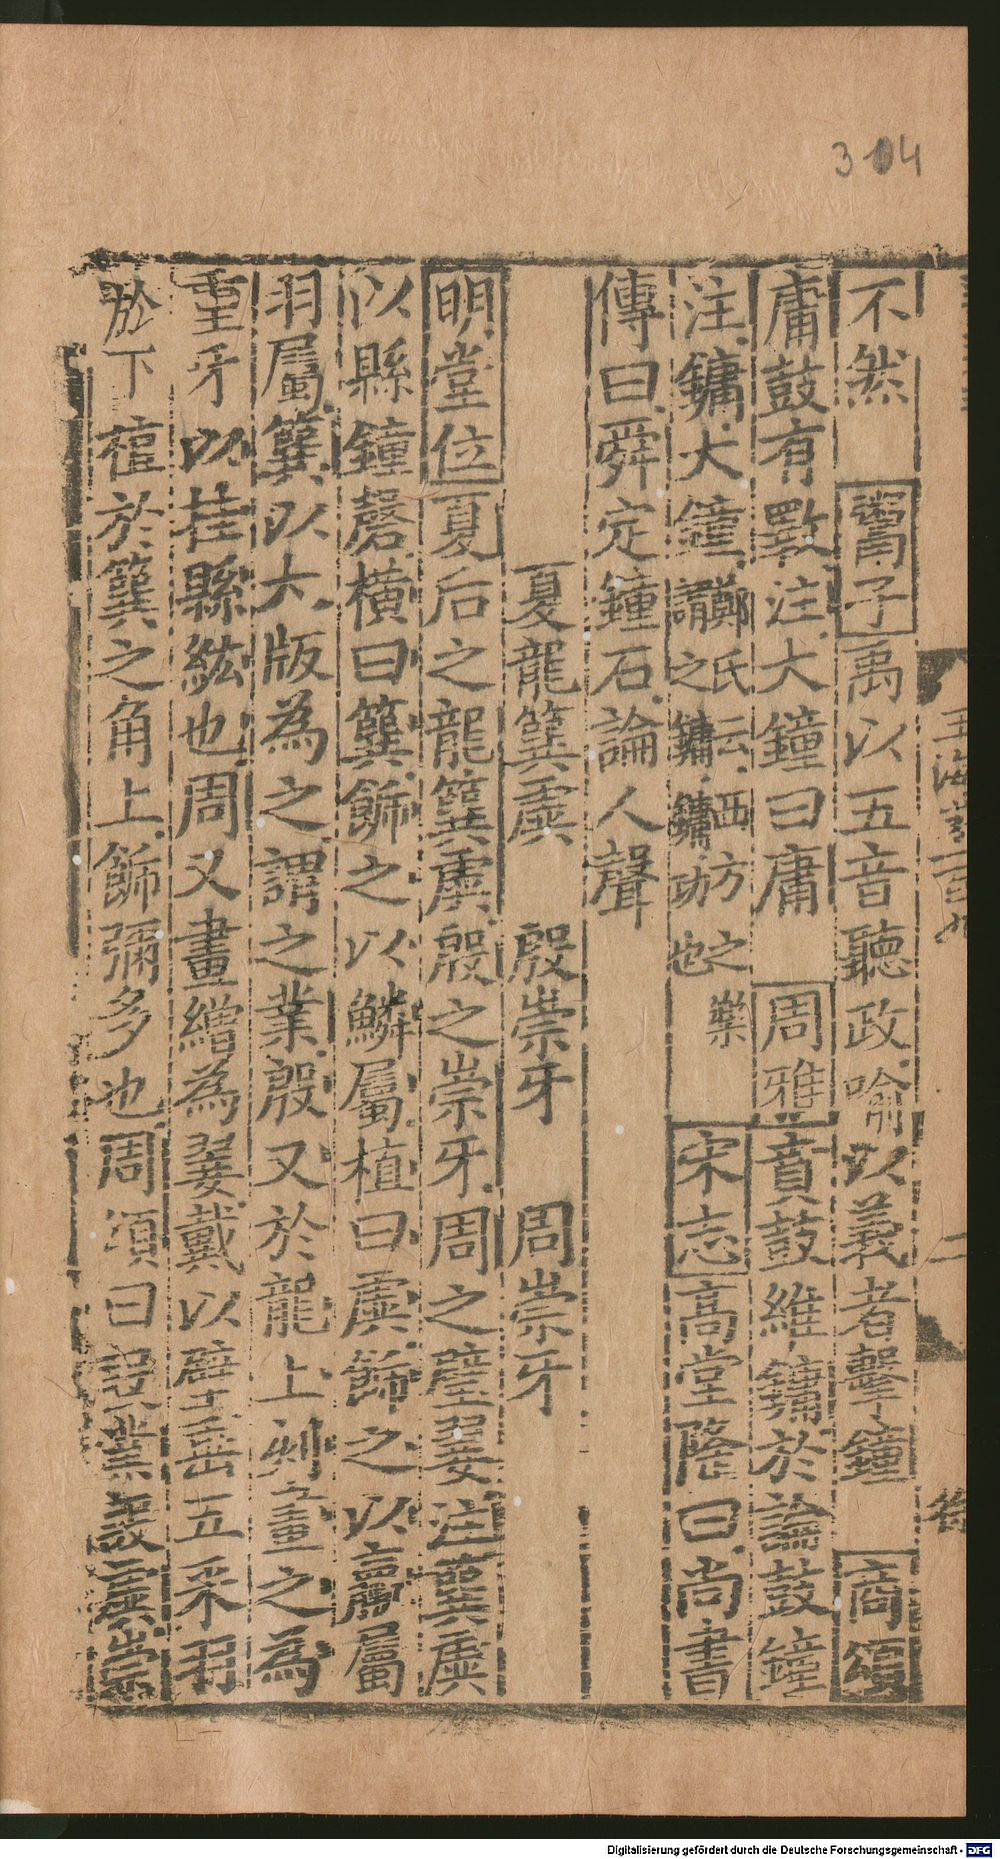 304
玉海卷一百九
二
不然 鬻子禹以五音聽政喻以義者擊鐘 商頌
庸鼓有斁注大鐘曰庸 周雅賁鼓維鏞於論鼓鐘
注鏞大鐘鄭氏云西方之樂謂之鏞鏞功也 宋志高堂隆曰尚書
傳曰舜定鐘石論人聲
夏龍簨虡 殷崇牙 周崇牙
明堂位夏后之龍簨虡殷之崇牙周之璧翣注簨虡
以縣鐘磬橫曰簨飾之以鱗屬植曰虡飾之以臝屬
羽屬簨以大版為之謂之業殷又於龍上刻畫之為
重牙以挂縣紘也周又畫繒為翣戴以璧垂五采羽
於下樹於簨之角上飾彌多也周頌曰設業設虡崇
Digitalisierung gefördert durch die Deutsche Forschungsgemeinschaft - DFG